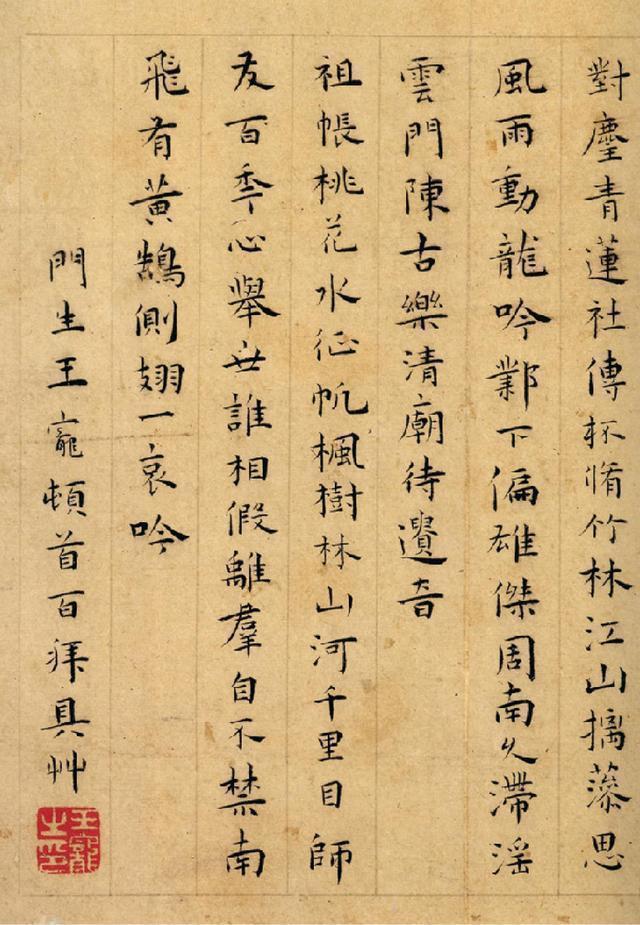 對麈青蓮社傳杯脩竹林江山摛藻思
風雨動龍吟鄴下偏雄傑周南久滯淫
雲門陳古樂清廟待遺音
祖帳桃花水征帆楓樹林山河千里目師
友百季心舉世誰相假離羣自不禁南
飛有黃鵠側翅一哀吟
門生王寵頓首百拜具艸
王寵之印